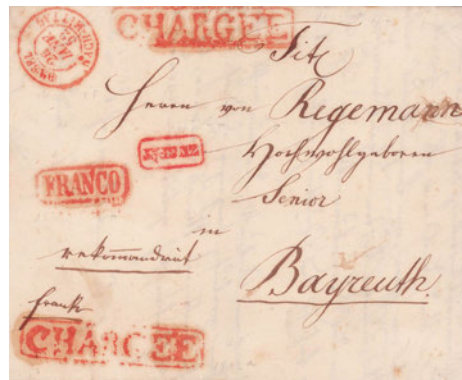 CHARGEE
Tit
Herrn von Regemann
Hochwohlgeboren
FRANCO
Senior
in
rekommandirt
Bayreuth.
frank
CHARGEE